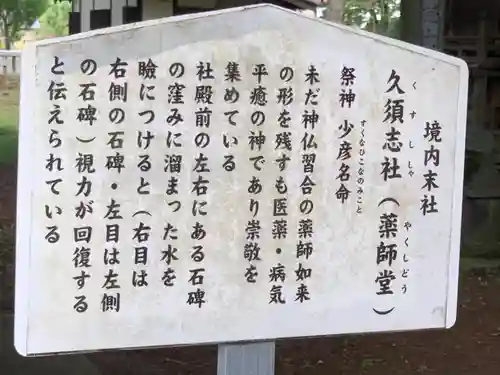 境内末社
久須志社（薬師堂）
くすししゃ
やくしどう
祭神 少彦名命
すくなひこなのみこと
未だ神仏習合の薬師如来
の形を残すも医薬・病気
平癒の神であり崇敬を
集めている
社殿前の左右にある石碑
の窪みに溜まった水を
瞼につけると（右目は
右側の石碑・左目は左側
の石碑）視力が回復する
と伝えられている